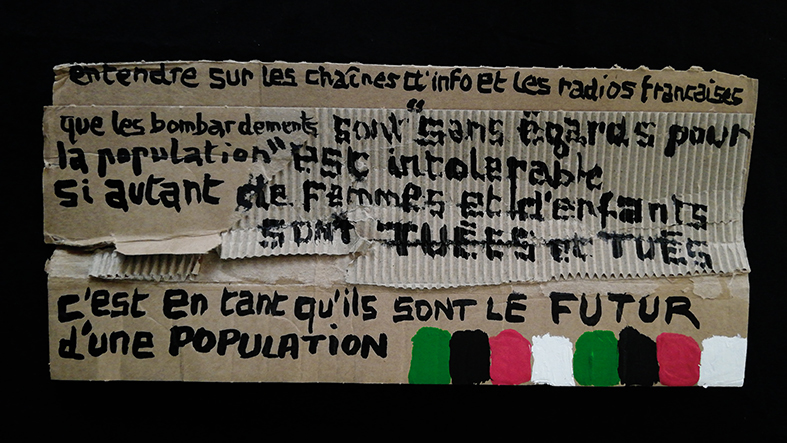 entendre sur les chaînes d'info et les radios francaises
que les bombardements sont "sans égards pour
la population" est intolerable
si autant de femmes et d'enfants
SONT TUÉES et TUÉS
c'est en tant qu'ils SONT LE FUTUR
d'une POPULATION